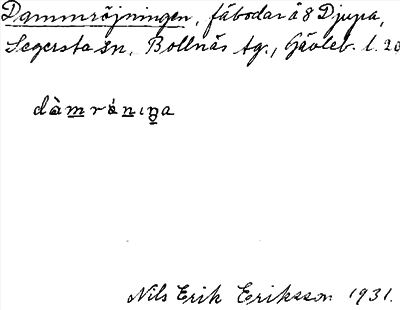 Dammröjningen, fäbodar å 8 Djupa,
Segersta sn, Bollnäs tg., Gävleb. l. 20
dàmrǿniŋa
Nils Erik Eriksson 1931.